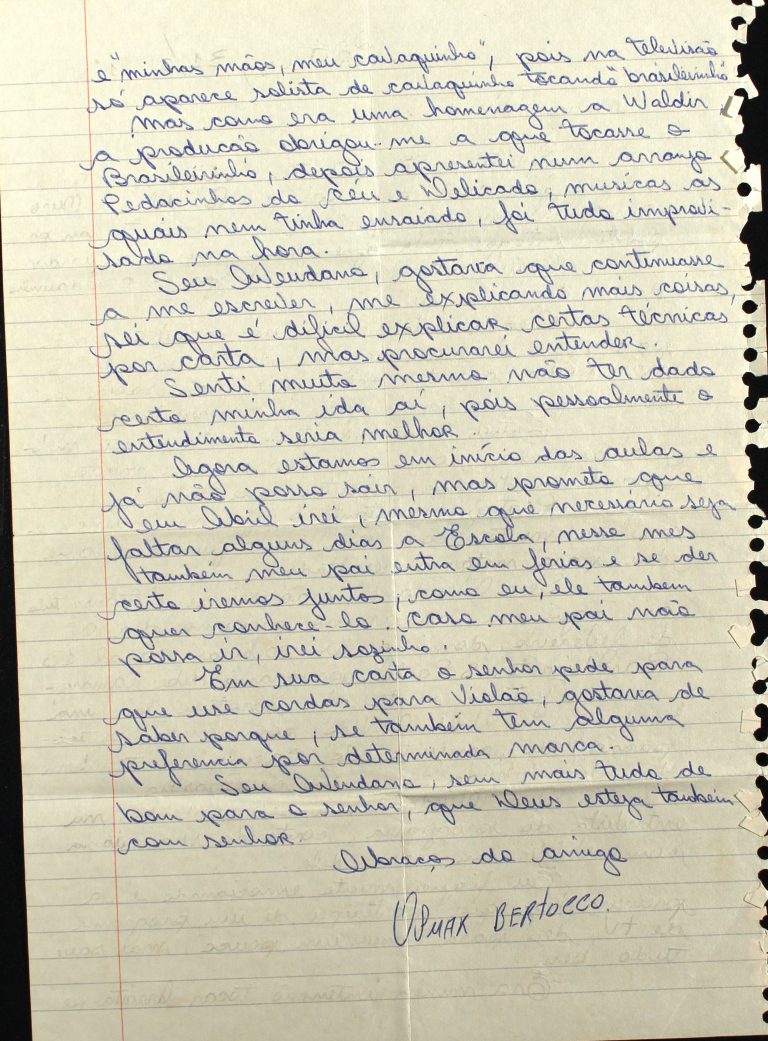 e "minhas mãos, meu cavaquinho", pois na televisão
só aparece solista de cavaquinho tocando "brasileirinho"
Mas como era uma homenagem a Waldir
a produção obrigou-me a que tocasse o
Brasileirinho, depois apresentei num arranjo
Pedacinhos do céu e Delicado, musicas as
quais nem tinha ensaiado, foi tudo improvi-
sado na hora.
Seu Avendano, gostaria que continuasse
a me escrever, me explicando mais coisas,
sei que é dificil explicar certas técnicas
por carta, mas procurarei entender.
Senti muito mesmo não ter dado
certo minha ida aí, pois pessoalmente o
entendimento seria melhor.
Agora estamos em início das aulas e
já não posso sair, mas prometo que
em Abril irei, mesmo que necessário seja
faltar alguns dias a Escola, nesse mes
também meu pai entra em férias e se der
certo iremos juntos, como eu, ele também
quer conhece-lo. Caso meu pai não
possa ir, irei sozinho.
Em sua carta o senhor pede para
que use cordas para Violão, gostaria de
saber porque, se também tem alguma
preferencia por determinada marca.
Seu Avendano, sem mais tudo de
bom para o senhor, que Deus esteja também
com senhor.
Abraços do amigo
OSMAR BERTOCCO.